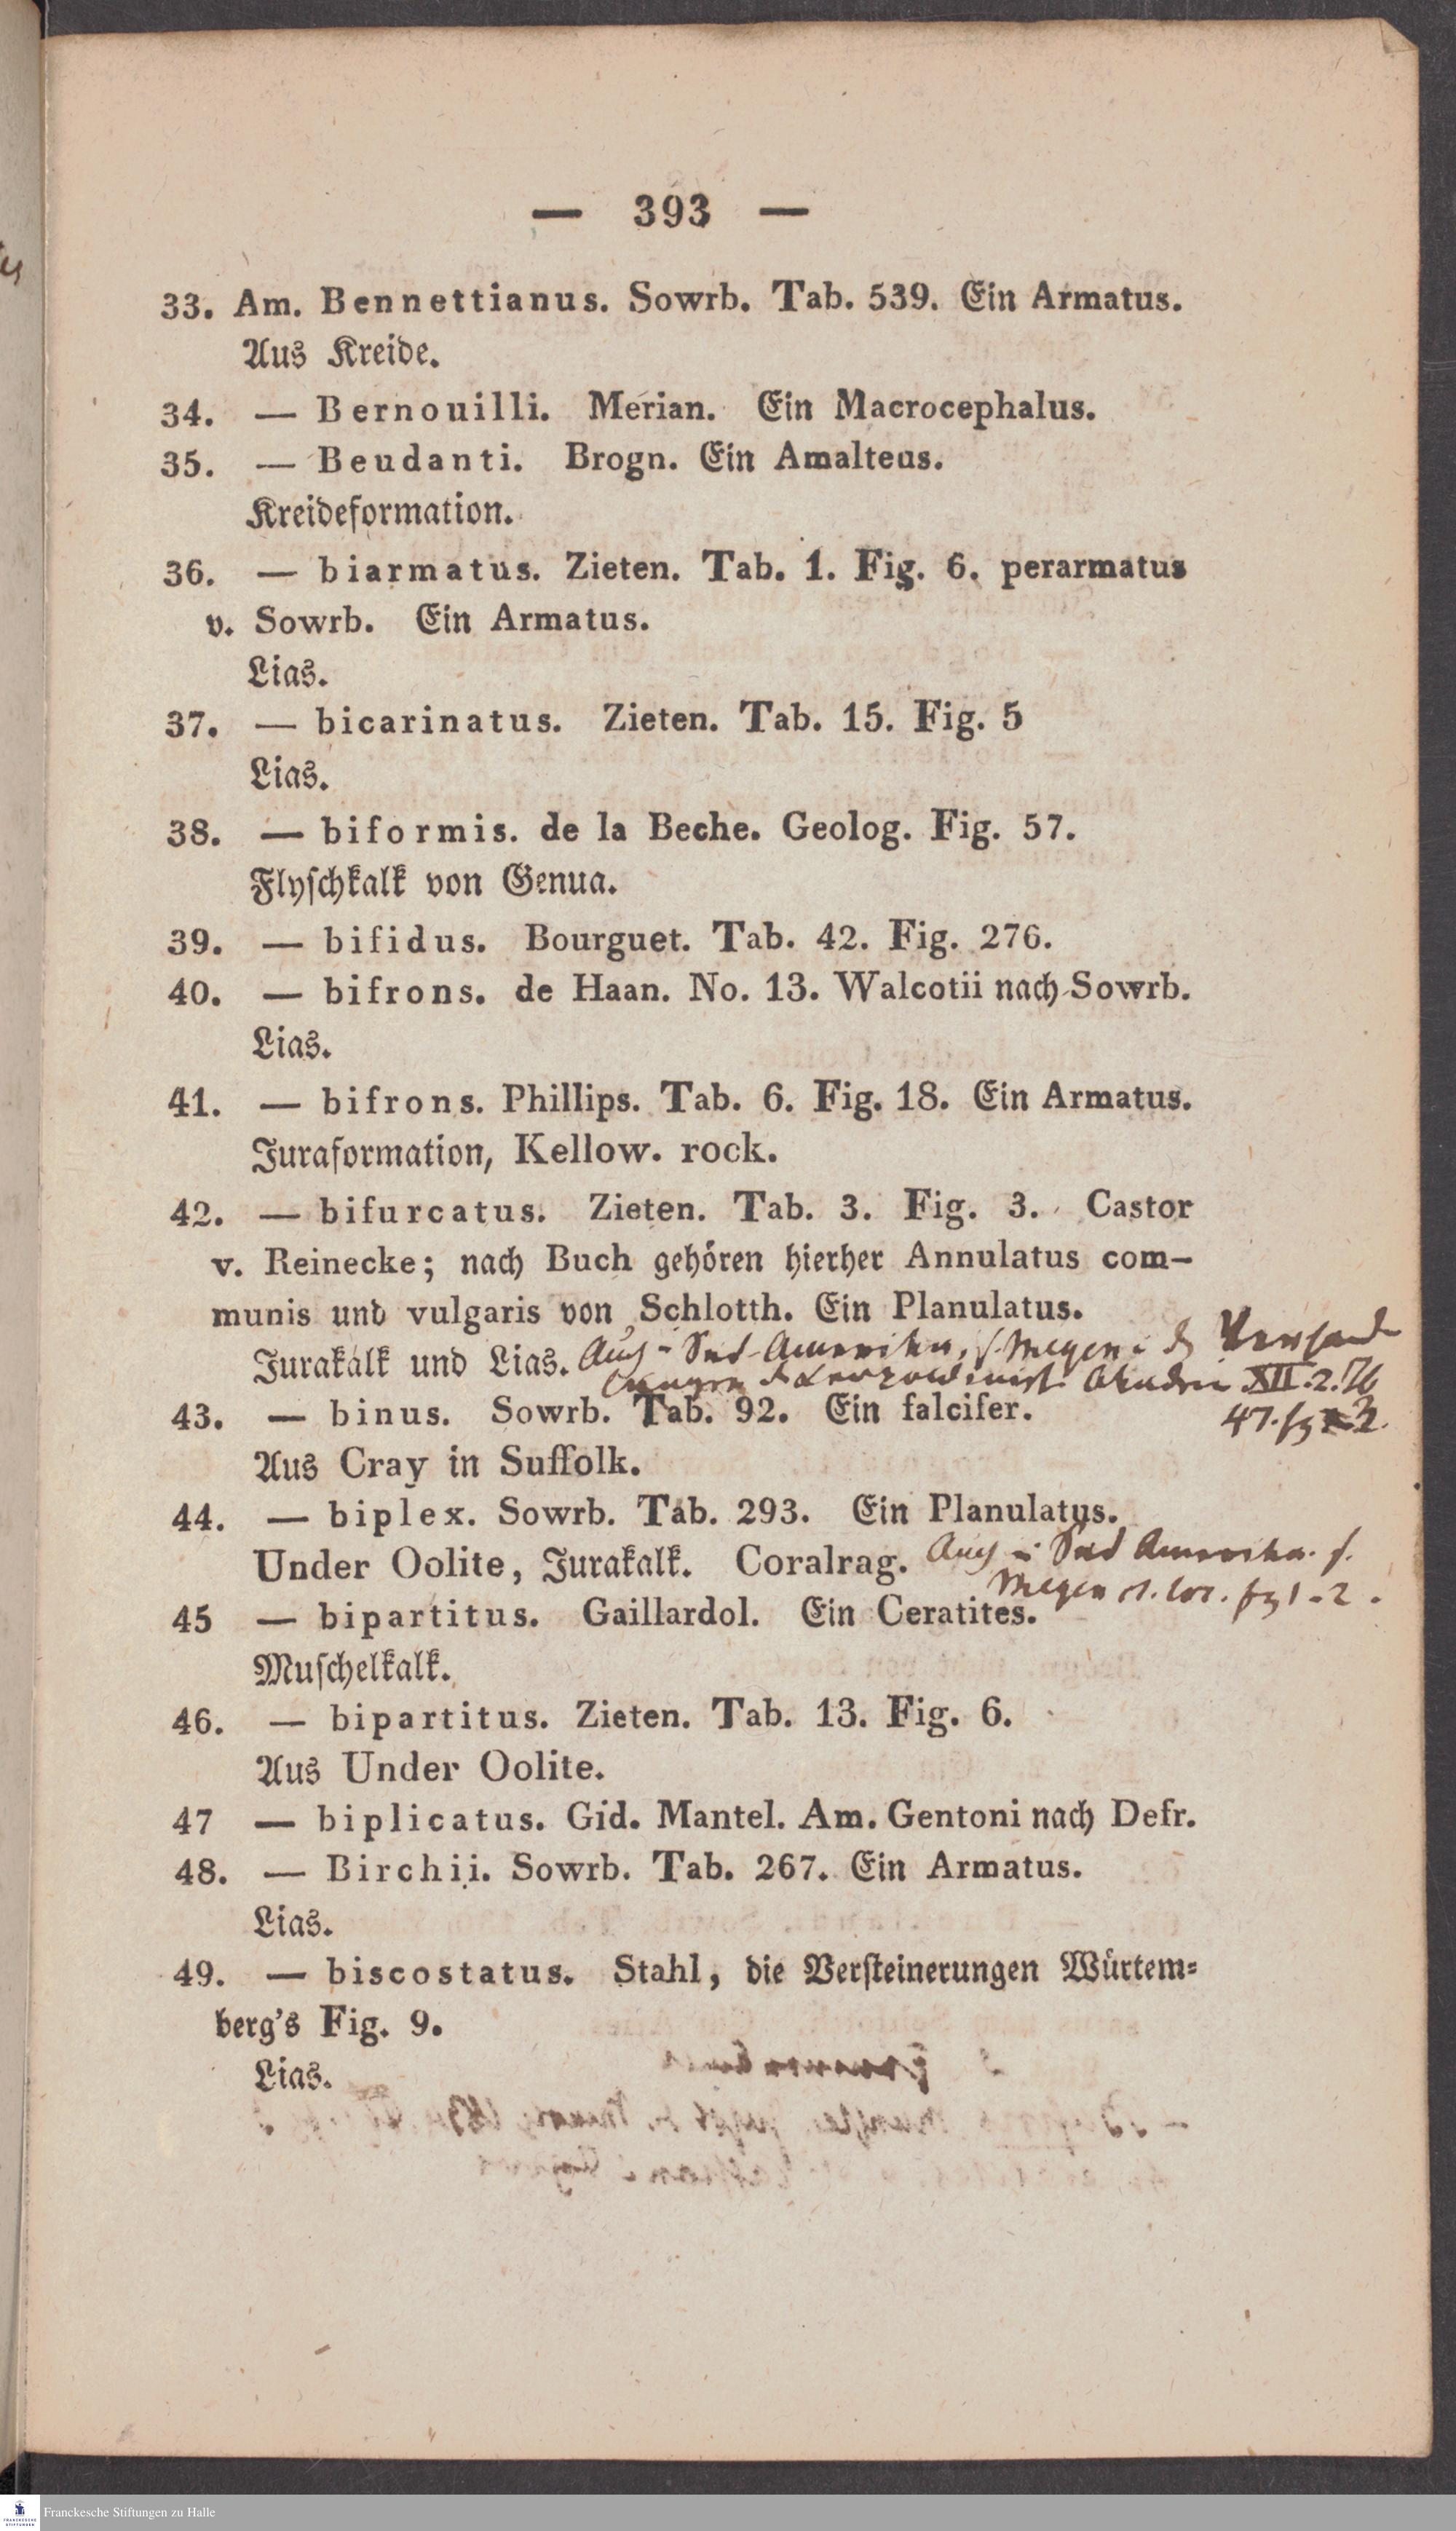 — 393 —
33. Am. Bennettianus. Sowrb. Tab. 539. Ein Armatus.
Aus Kreide.
34. — Bernouilli. Merian. Ein Macrocephalus.
35. — Beudanti. Brogn. Ein Amalteus.
Kreideformation.
36. — biarmatus. Zieten. Tab. 1. Fig. 6. perarmatus
v. Sowrb. Ein Armatus.
Lias.
37. — bicarinatus. Zieten. Tab. 15. Fig. 5
Lias.
38. — biformis. de la Beche. Geolog. Fig. 57.
Flyschkalk von Genua.
39. — bifidus. Bourguet. Tab. 42. Fig. 276.
40. — bifrons. de Haan. No. 13. Walcotii nach Sowrb.
Lias.
41. — bifrons. Phillips. Tab. 6. Fig. 18. Ein Armatus.
Juraformation, Kellow. rock.
42. — bifurcatus. Zieten. Tab. 3. Fig. 3. Castor
v. Reinecke; nach Buch gehören hierher Annulatus com-
munis und vulgaris von Schlotth. Ein Planulatus.
Jurakalk und Lias. Auch Süd-Amerika, s. Meyen d Verhand
lungen d Leopoldinisch. Akademie XII. 2.
47. fg 2.
43. — binus. Sowrb. Tab. 92. Ein falcifer.
Aus Cray in Suffolk.
44. — biplex. Sowrb. Tab. 293. Ein Planulatus.
Under Oolite, Jurakalk. Coralrag. Auch i Süd Amerika. s.
Meyen loc. fg 1-2.
45 — bipartitus. Gaillardol. Ein Ceratites.
Muschelkalk.
46. — bipartitus. Zieten. Tab. 13. Fig. 6.
Aus Under Oolite.
47 — biplicatus. Gid. Mantel. Am. Gentoni nach Defr.
48. — Birchii. Sowrb. Tab. 267. Ein Armatus.
Lias.
49. — biscostatus. Stahl, die Versteinerungen Würtem-
berg's Fig. 9.
Lias.
Franckesche Stiftungen zu Halle